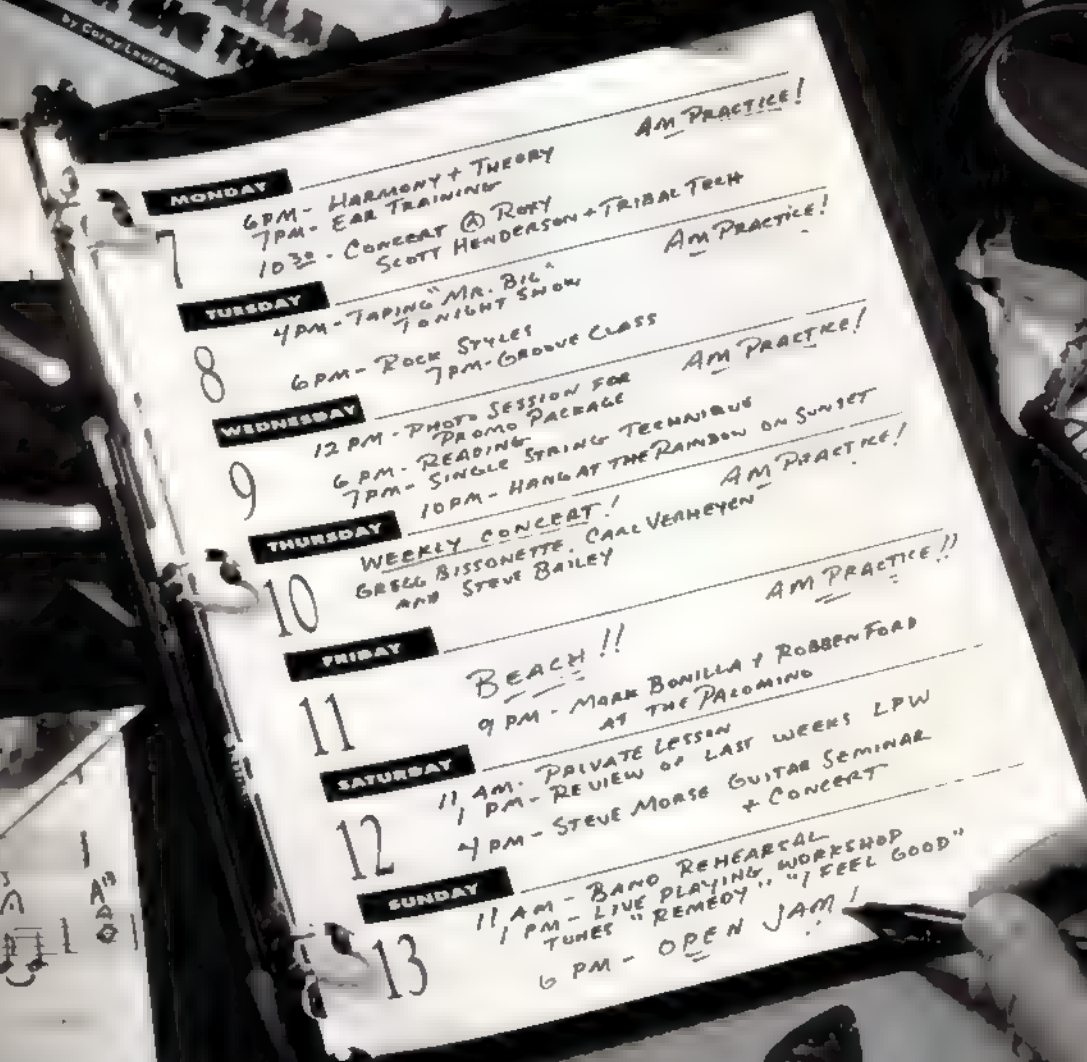 by Corey Levitan
AM PRACTICE!
MONDAY
7
6 PM - HARMONY + THEORY
7 PM - EAR TRAINING
10 30 - CONCERT @ ROXY
SCOTT HENDERSON + TRIBAL TECH
AM PRACTICE!
TUESDAY
8
4 PM - TAPING "MR. BIG"
TONIGHT SHOW
6 PM - ROCK STYLES
7 PM - GROOVE CLASS
AM PRACTICE!
WEDNESDAY
9
12 PM - PHOTO SESSION FOR
PROMO PACKAGE
6 PM - READING
7 PM - SINGLE STRING TECHNIQUE
10 PM - HANG AT THE RAINBOW ON SUNSET
AM PRACTICE!
THURSDAY
10
WEEKLY CONCERT!
GREGG BISSONETTE, CARL VERHEYEN
AND STEVE BAILEY
AM PRACTICE!!
FRIDAY
11
BEACH!!
9 PM - MARK BONILLA + ROBBEN FORD
AT THE PALOMINO
SATURDAY
12
11 AM - PRIVATE LESSON
1 PM - REVIEW OF LAST WEEKS LPW
4 PM - STEVE MORSE GUITAR SEMINAR
+ CONCERT
SUNDAY
13
11 AM - BAND REHEARSAL
1 PM - LIVE PLAYING WORKSHOP
TUNES "REMEDY" "I FEEL GOOD"
6 PM - OPEN JAM!